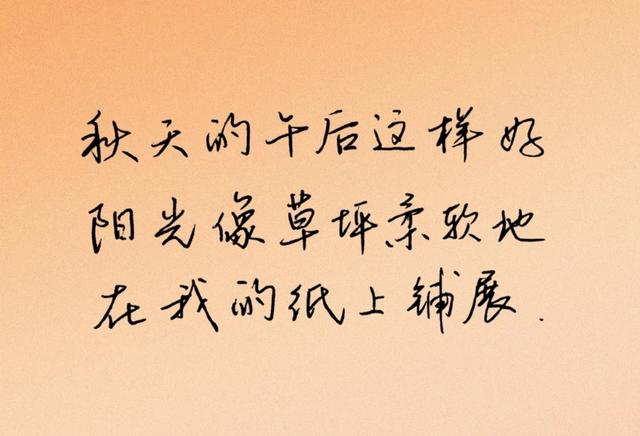 秋天的午后这样好
阳光像草坪柔软地
在我的纸上铺展.